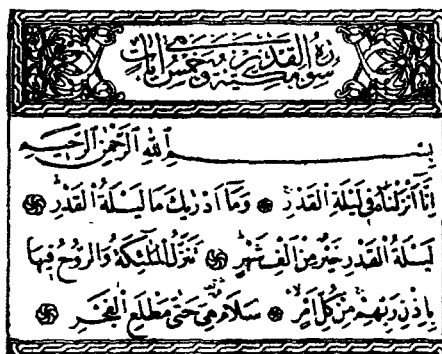 سورة القدر مكية وهي خمس آيات
بِسْمِ اللهِ الرَّحْمٰنِ الرَّحِيمِ
اِنَّٓا اَنْزَلْنَاهُ فِى لَيْلَةِ الْقَدْرِ ۞ وَمَٓا اَدْرٰيكَ مَا لَيْلَةُ الْقَدْرِ ۞
لَيْلَةُ الْقَدْرِ خَيْرٌ مِنْ اَلْفِ شَهْرٍ ۞ تَنَزَّلُ الْمَلٰٓئِكَةُ وَالرُّوحُ فِيهَا
بِاِذْنِ رَبِّهِمْ مِنْ كُلِّ اَمْرٍ ۞ سَلَامٌ هِىَ حَتّٰى مَطْلَعِ الْفَجْرِ ۞